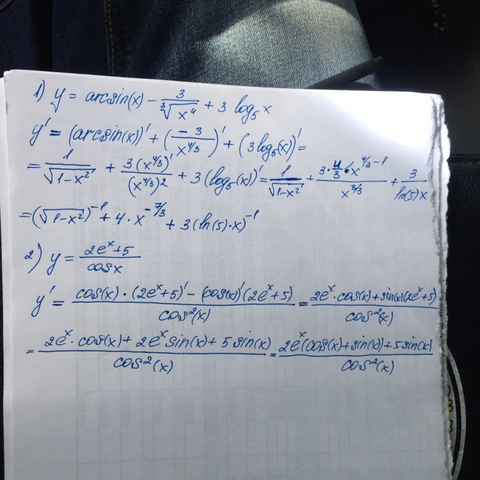 1) y = arcsin(x) − 3/∛(x⁴) + 3 log₅x
y' = (arcsin(x))' + (−3/x^(4/3))' + (3log₅(x))' =
= 1/√(1−x²) + 3(x^(4/3))'/(x^(4/3))² + 3(log₅(x))' = 1/√(1−x²) + 3·4/3·x^(4/3−1)/x^(8/3) + 3/ln(5)x
= (√(1−x²))⁻¹ + 4·x^(−7/3) + 3(ln(5)·x)⁻¹
2) y = (2eˣ+5)/cosx
y' = (cos(x)·(2eˣ+5)' − (cos(x))'(2eˣ+5))/cos²(x) = (2eˣ·cos(x)+sin(x)(2eˣ+5))/cos²(x)
= (2eˣ·cos(x)+2eˣsin(x)+5sin(x))/cos²(x) = (2eˣ(cos(x)+sin(x))+5sin(x))/cos²(x)